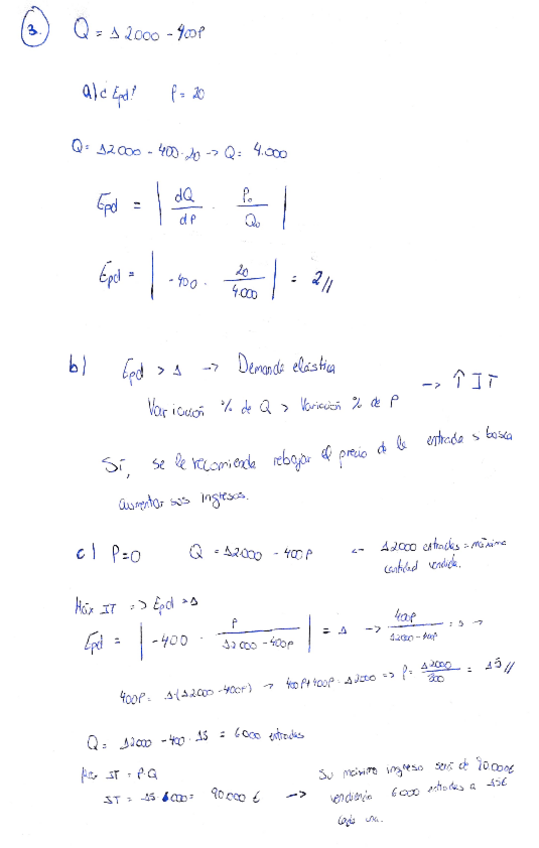 3. Q = 12000 - 400P
a) ¿ Epd? P = 20
Q = 12000 - 400·20 → Q = 4.000
Epd = | dQ/dP · P₀/Q₀ |
Epd = | -400 · 20/4.000 | = 2//
b) Epd > 1 → Demanda elástica
Variación % de Q > Variación % de P → ↑ IT
Sí, se le recomienda rebajar el precio de la entrada si busca
aumentar sus ingresos.
c) P=0 Q = 12000 - 400P ← 12000 entradas = máxima
cantidad vendida.
Máx IT => Epd = 1
Epd = | -400 · P/(12000 - 400P) | = 1 → 400P/(12000 - 400P) = 1 →
400P = 1·(12000 - 400P) → 400P+400P = 12000 => P = 12000/800 = 15//
Q = 12000 - 400·15 = 6000 entradas
IT = P·Q
IT = 15·6000 = 90.000 € → Su máximo ingreso será de 90.000€
vendiendo 6000 entradas a 15€
cada una.